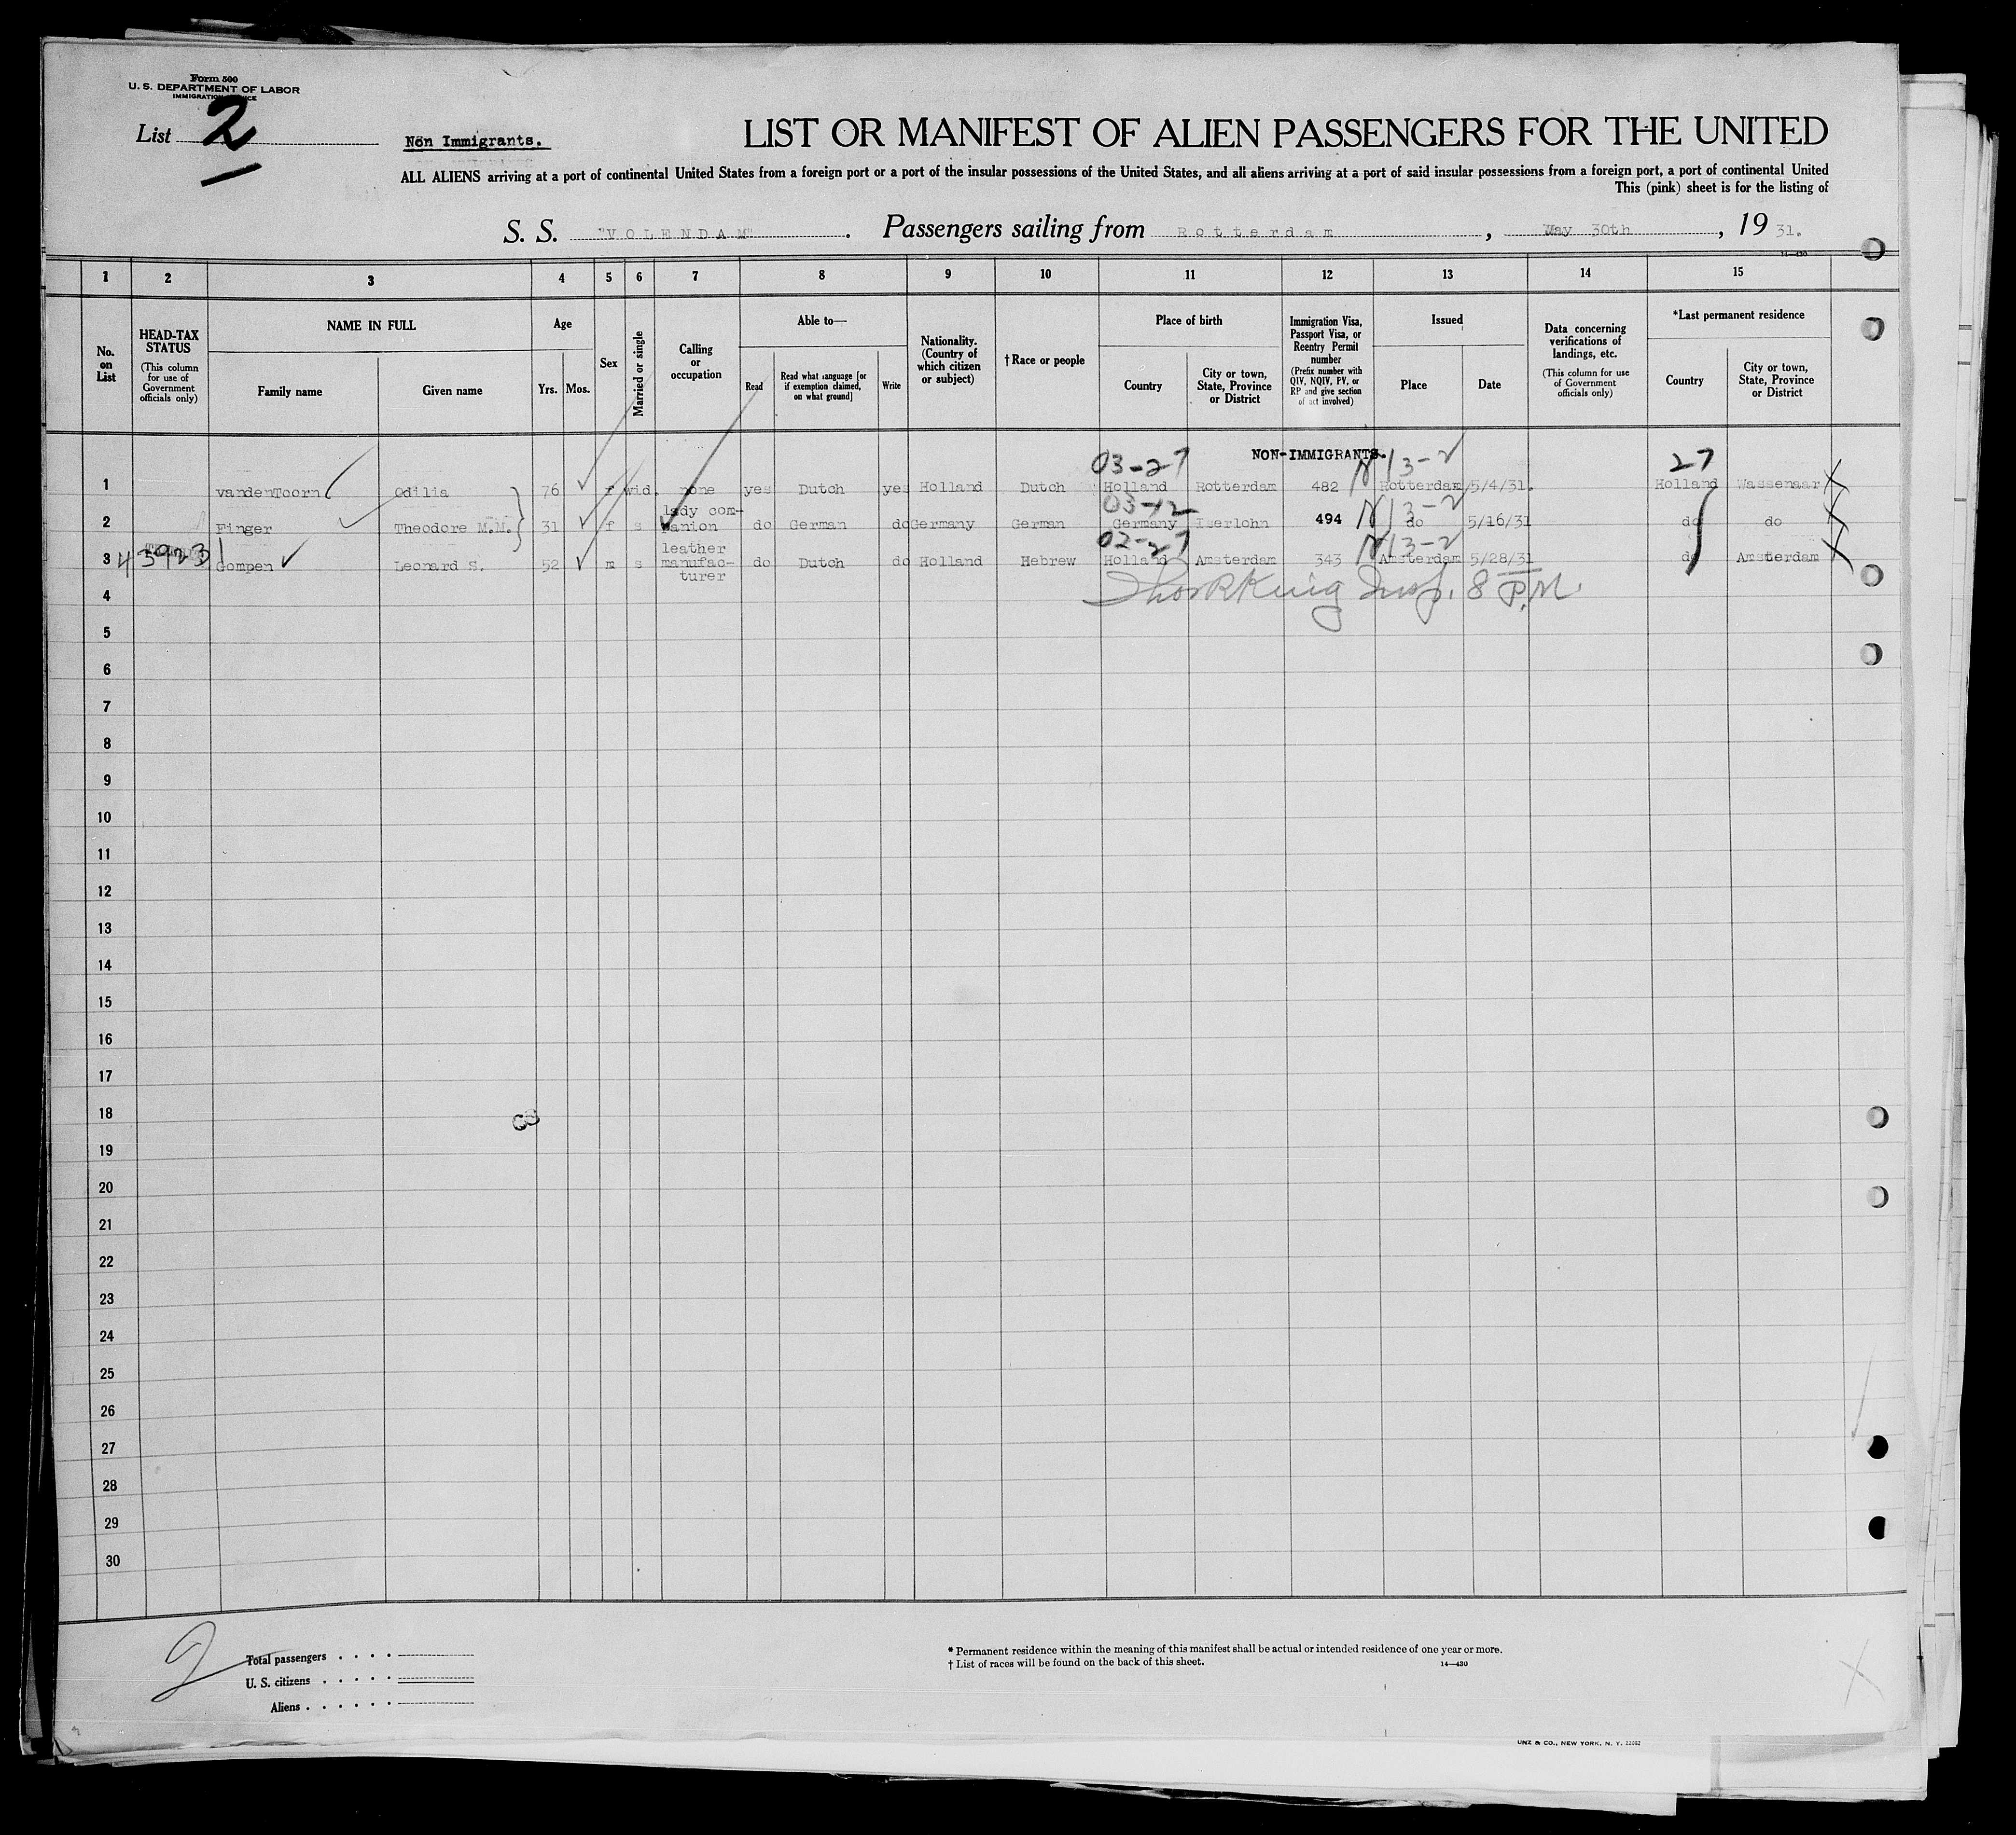 Form 500
U. S. DEPARTMENT OF LABOR
List 2
Non Immigrants.
LIST OR MANIFEST OF ALIEN PASSENGERS FOR THE UNITED
ALL ALIENS arriving at a port of continental United States from a foreign port or a port of the insular possessions of the United States, and all aliens arriving at a port of said insular possessions from a foreign port, a port of continental United
This (pink) sheet is for the listing of
S. S. "VOLENDAM". Passengers sailing from Rotterdam, May 30th, 1931.
14—430
1 2 3 4 5 6 7 8 9 10 11 12 13 14 15
No. on List
HEAD-TAX STATUS (This column for use of Government officials only)
NAME IN FULL
Family name
Given name
Age
Yrs. Mos.
Sex
Married or single
Calling or occupation
Able to—
Read
Read what language [or if exemption claimed, on what ground]
Write
Nationality. (Country of which citizen or subject)
†Race or people
Place of birth
Country
City or town, State, Province or District
Immigration Visa, Passport Visa, or Reentry Permit number (Prefix number with QIV, NQIV, PV, or RP and give section of act involved)
Issued
Place
Date
Data concerning verifications of landings, etc. (This column for use of Government officials only)
*Last permanent residence
Country
City or town, State, Province or District
NON-IMMIGRANTS.
03-27 13-2 27
1 vandenToorn Odilia 76 f wid. none yes Dutch yes Holland Dutch Holland Rotterdam 482 Rotterdam 5/4/31. Holland Wassenaar
03-12 13-2
2 Finger Theodore M.M. 31 f s lady companion do German do Germany German Germany Iserlohn 494 do 5/16/31 do do
02-27 13-2
3 43923 Gompen Leonard S. 52 m s leather manufac-turer do Dutch do Holland Hebrew Holland Amsterdam 343 Amsterdam 5/28/31 do Amsterdam
4 Insp. 8 P.M.
5
6
7
8
9
10
11
12
13
14
15
16
17
18
19
20
21
22
23
24
25
26
27
28
29
30
2
Total passengers
U. S. citizens
Aliens
* Permanent residence within the meaning of this manifest shall be actual or intended residence of one year or more.
† List of races will be found on the back of this sheet.
14—430
UNZ & CO., NEW YORK, N. Y.